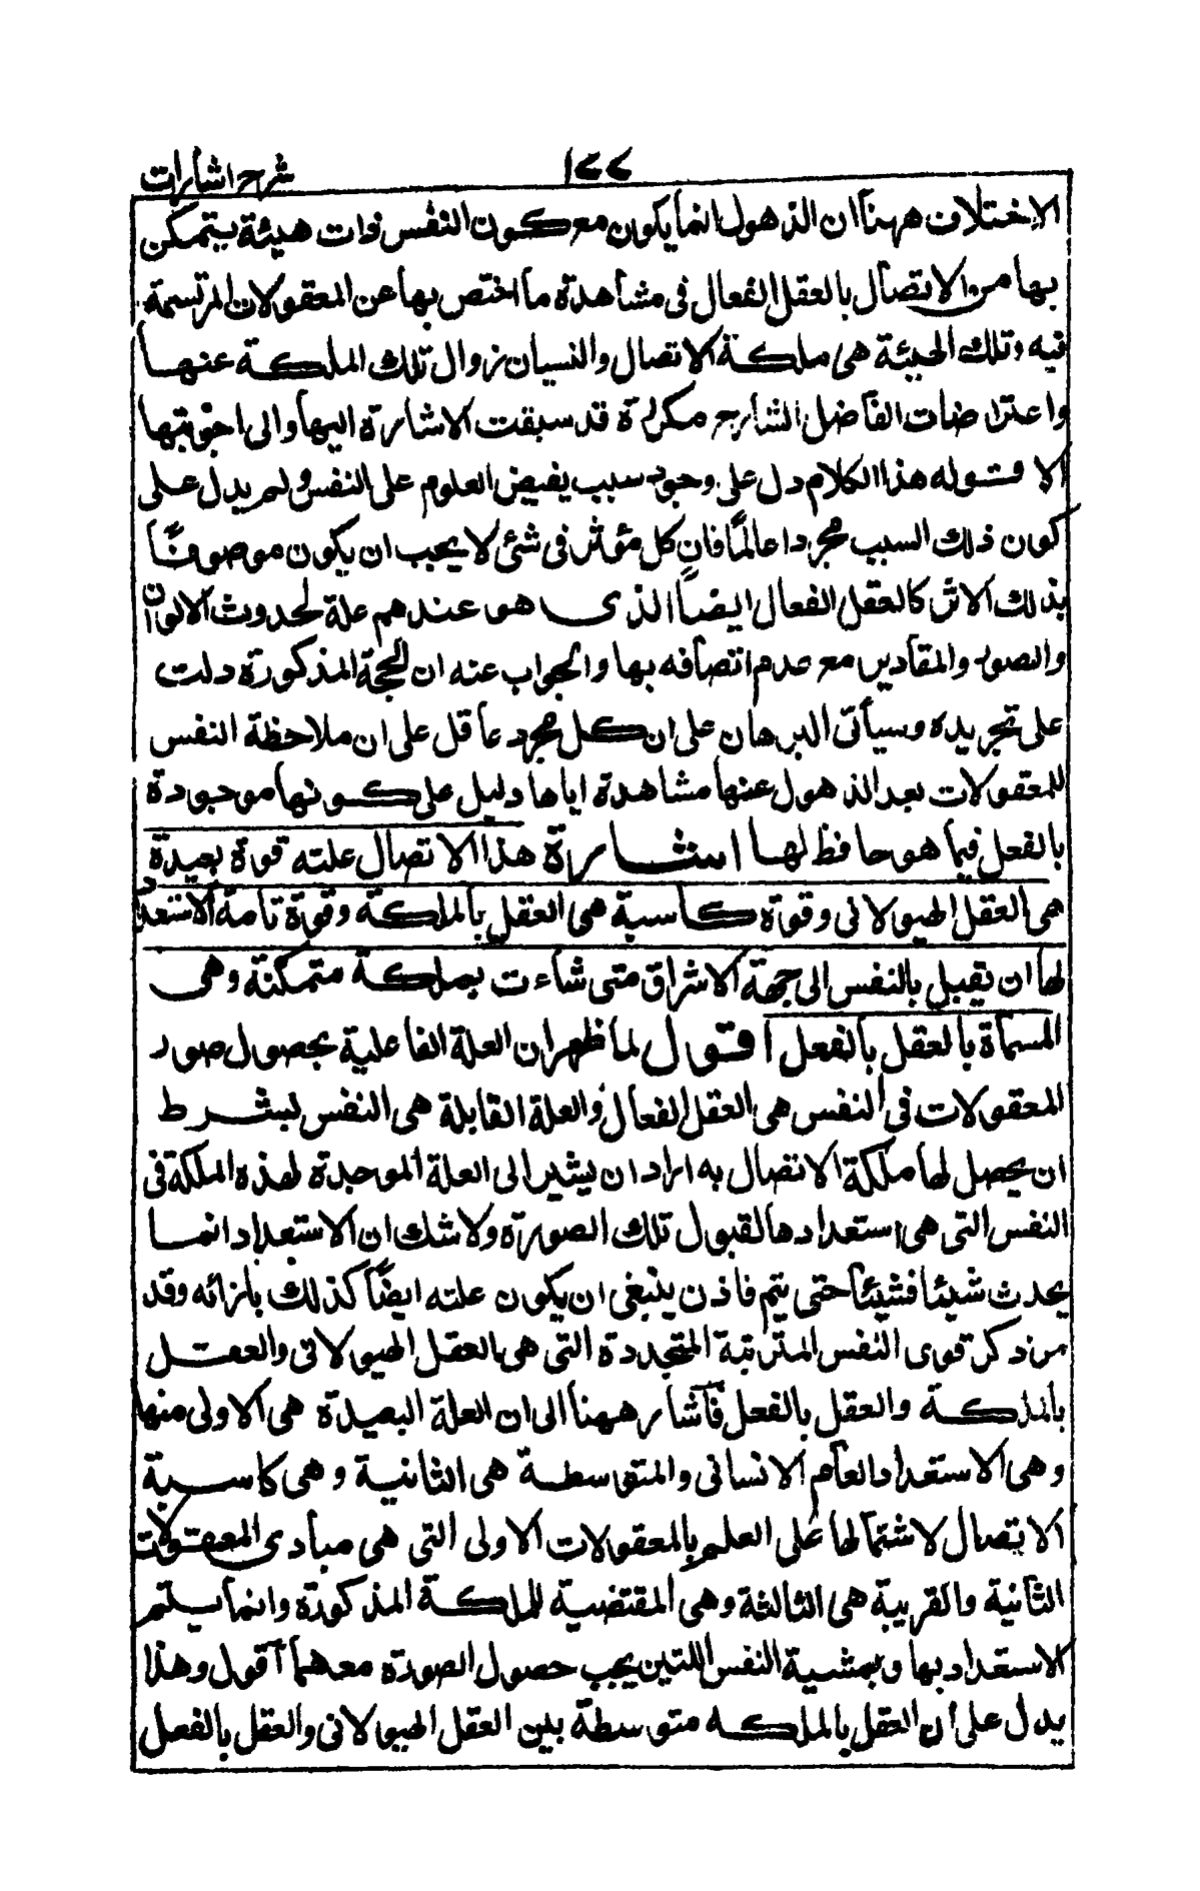 ١٧٧ شرح اشارات
الاختلاف ههنا ان الذهول انما يكون مع كون النفس ذات هيئة يتمكن
بها من الاتصال بالعقل الفعال فى مشاهدة ما اختص بها عن المعقولات المرتسمة
فيه وتلك الهيئة هى ملكة الاتصال والنسيان زوال تلك الملكة عنها
واعتراضات الفاضل الشارح مكررة قد سبقت الاشارة اليها والى اجوبتها
الا قوله هذا الكلام دل على وجود سبب يفيض العلوم على النفس ولم يدل على
كون ذلك السبب مجردا عالمًا فان كل مؤثر فى شئ لا يجب ان يكون موصوفًا
بذلك الاثر كالعقل الفعال ايضًا الذى هو عندهم علة لحدوث الالوان
والصور والمقادير مع عدم اتصافه بها والجواب عنه ان الحجة المذكورة دلت
على تجريده وسيأتى البرهان على ان كل مجرد عاقل على ان ملاحظة النفس
للمعقولات بعد الذهول عنها مشاهدة اياها دليل على كونها موجودة
بالفعل فيما هو حافظ لها اشارة هذا الاتصال علته قوة بعيدة
هى العقل الهيولانى وقوة كاسبة هى العقل بالملكة وقوة تامة الاستعداد
لها ان تقبل بالنفس الى جهة الاشراق متى شاءت بملكة متمكنة وهى
المسماة بالعقل بالفعل اقول لما ظهر ان العلة الفاعلية بحصول صور
المعقولات فى النفس هى العقل الفعال والعلة القابلة هى النفس بشرط
ان يحصل لها ملكة الاتصال به اراد ان يشير الى العلة الموجدة لهذه الملكة فى
النفس التى هى استعدادها لقبول تلك الصورة ولا شك ان الاستعداد انما
يحدث شيئا فشيئًا حتى يتم فاذن ينبغى ان يكون علته ايضًا كذلك بازائه وقد
مر ذكر قوى النفس المترتبة المتجددة التى هى العقل الهيولانى والعقل
بالملكة والعقل بالفعل فاشار ههنا الى ان العلة البعيدة هى الاولى منها
وهى الاستعداد العام الانسانى والمتوسطة هى الثانية وهى كاسبة
الاتصال لاشتمالها على العلم بالمعقولات الاولى التى هى مبادى المعقولات
الثانية والقريبة هى الثالثة وهى المقتضية للملكة المذكورة وانما يتم
الاستعداد بها وبمشية النفس اللتين يجب حصول الصورة معهما اقول وهذا
يدل على ان العقل بالملكه متوسطة بين العقل الهيولانى والعقل بالفعل